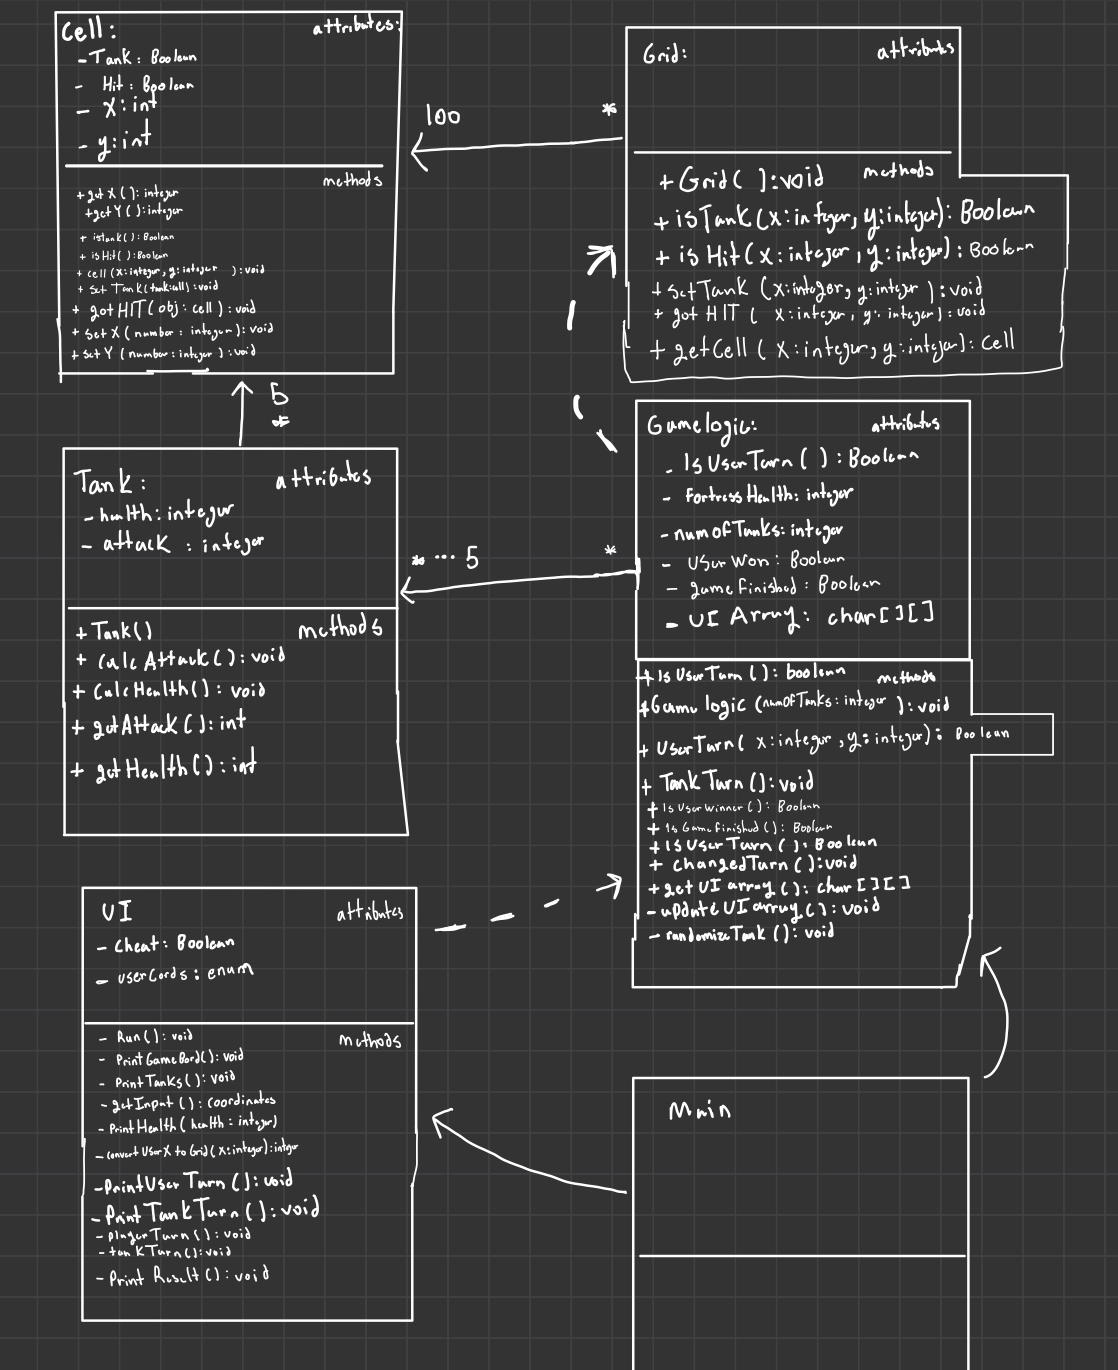 Cell:
attributes:
- Tank: Boolean
- Hit: Boolean
- X: int
- y: int
methods
+ get X ( ): integer
+ get Y ( ): integer
+ istank( ): Boolean
+ is Hit( ): Boolean
+ cell (x: integer, y: integer ): void
+ Set Tank (tank: cell): void
+ got HIT (obj: cell): void
+ set X (number: integer): void
+ set Y (number: integer): void
100
*
Grid:
attributes
methods
+ Grid( ): void
+ isTank (x: integer, y: integer): Boolean
+ is Hit( x: integer, y: integer): Boolean
+ setTank (x: integer, y: integer ): void
+ got HIT ( x: integer, y: integer): void
+ getCell ( x: integer, y: integer): Cell
5
*
Tank:
attributes
- health: integer
- attack : integer
methods
+ Tank()
+ Calc Attack(): void
+ Calc Health(): void
+ getAttack(): int
+ getHealth(): int
* ... 5
*
Gamelogic:
attributes
- Is UserTurn ( ): Boolean
- Fortress Health: integer
- num of Tanks: integer
- User Won: Boolean
- game finished: Boolean
- UI Array: char[][]
methods
+ Is User Turn (): boolean
+ Game logic (numofTanks: integer ): void
+ UserTurn( x: integer, y: integer): Boolean
+ Tank Turn (): void
+ Is User winner (): Boolean
+ Is Game Finished (): Boolean
+ Is User Turn (): Boolean
+ changedTurn (): void
+ get UI array (): char [][]
- update UI array(): void
- randomize Tank (): void
UI
attributes
- Cheat: Boolean
- userCords: enum
methods
- Run(): void
- PrintGameBord(): void
- Print Tanks(): void
- getInput (): Coordinates
- Print Health ( health: integer)
- convert User X to Grid (x: integer): integer
- Print User Turn (): void
- Print Tank Turn (): void
- player Turn (): void
- tank Turn (): void
- Print Result (): void
Main